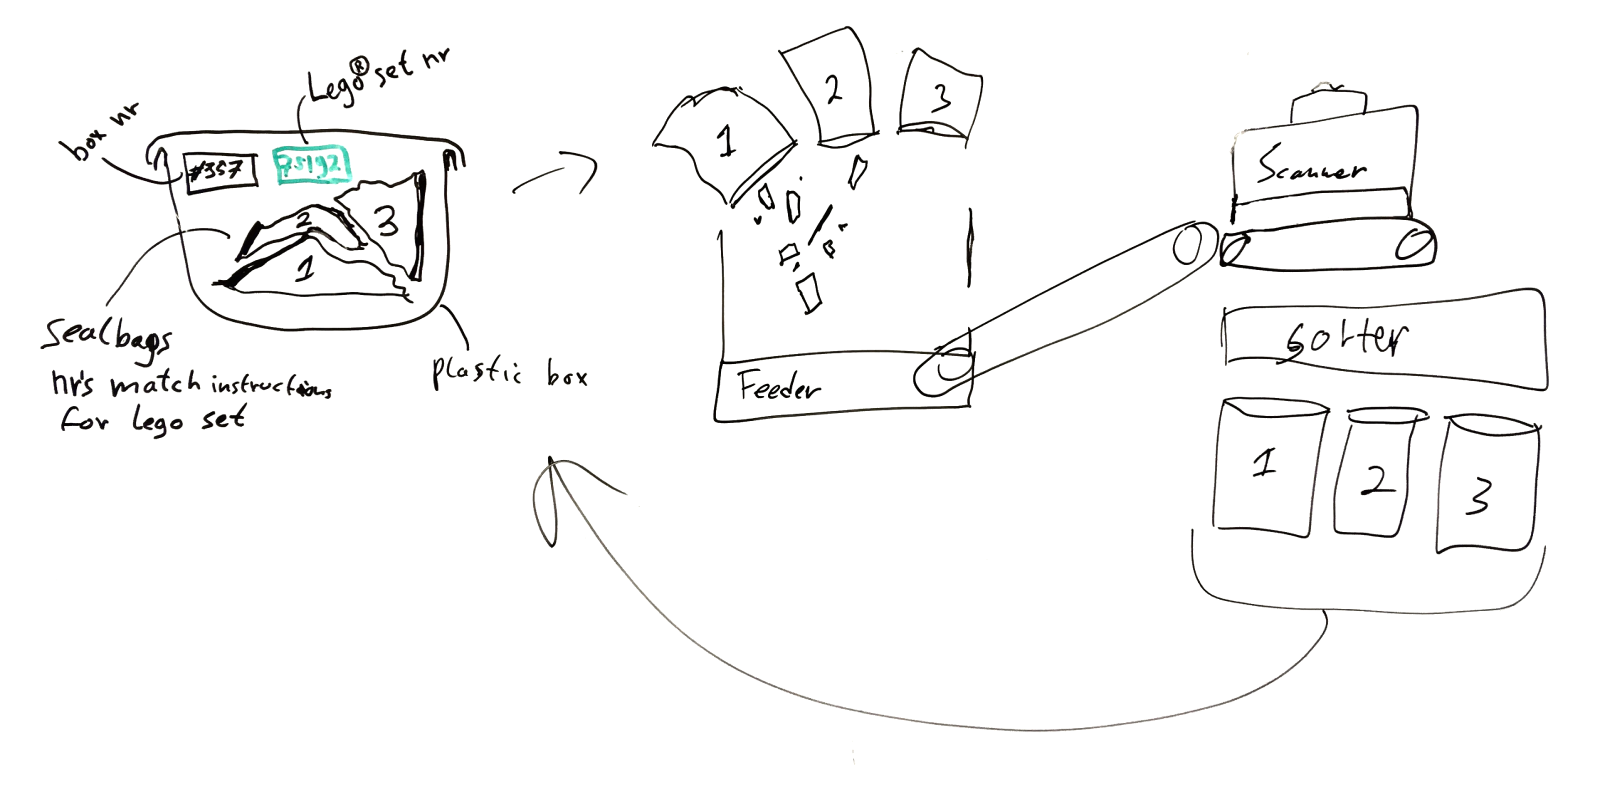 box nr
Lego® set nr
#357
75192
1
2
3
sealbags
nr's match instructions
for lego set
plastic box
1
2
3
Feeder
Scanner
sorter
1
2
3